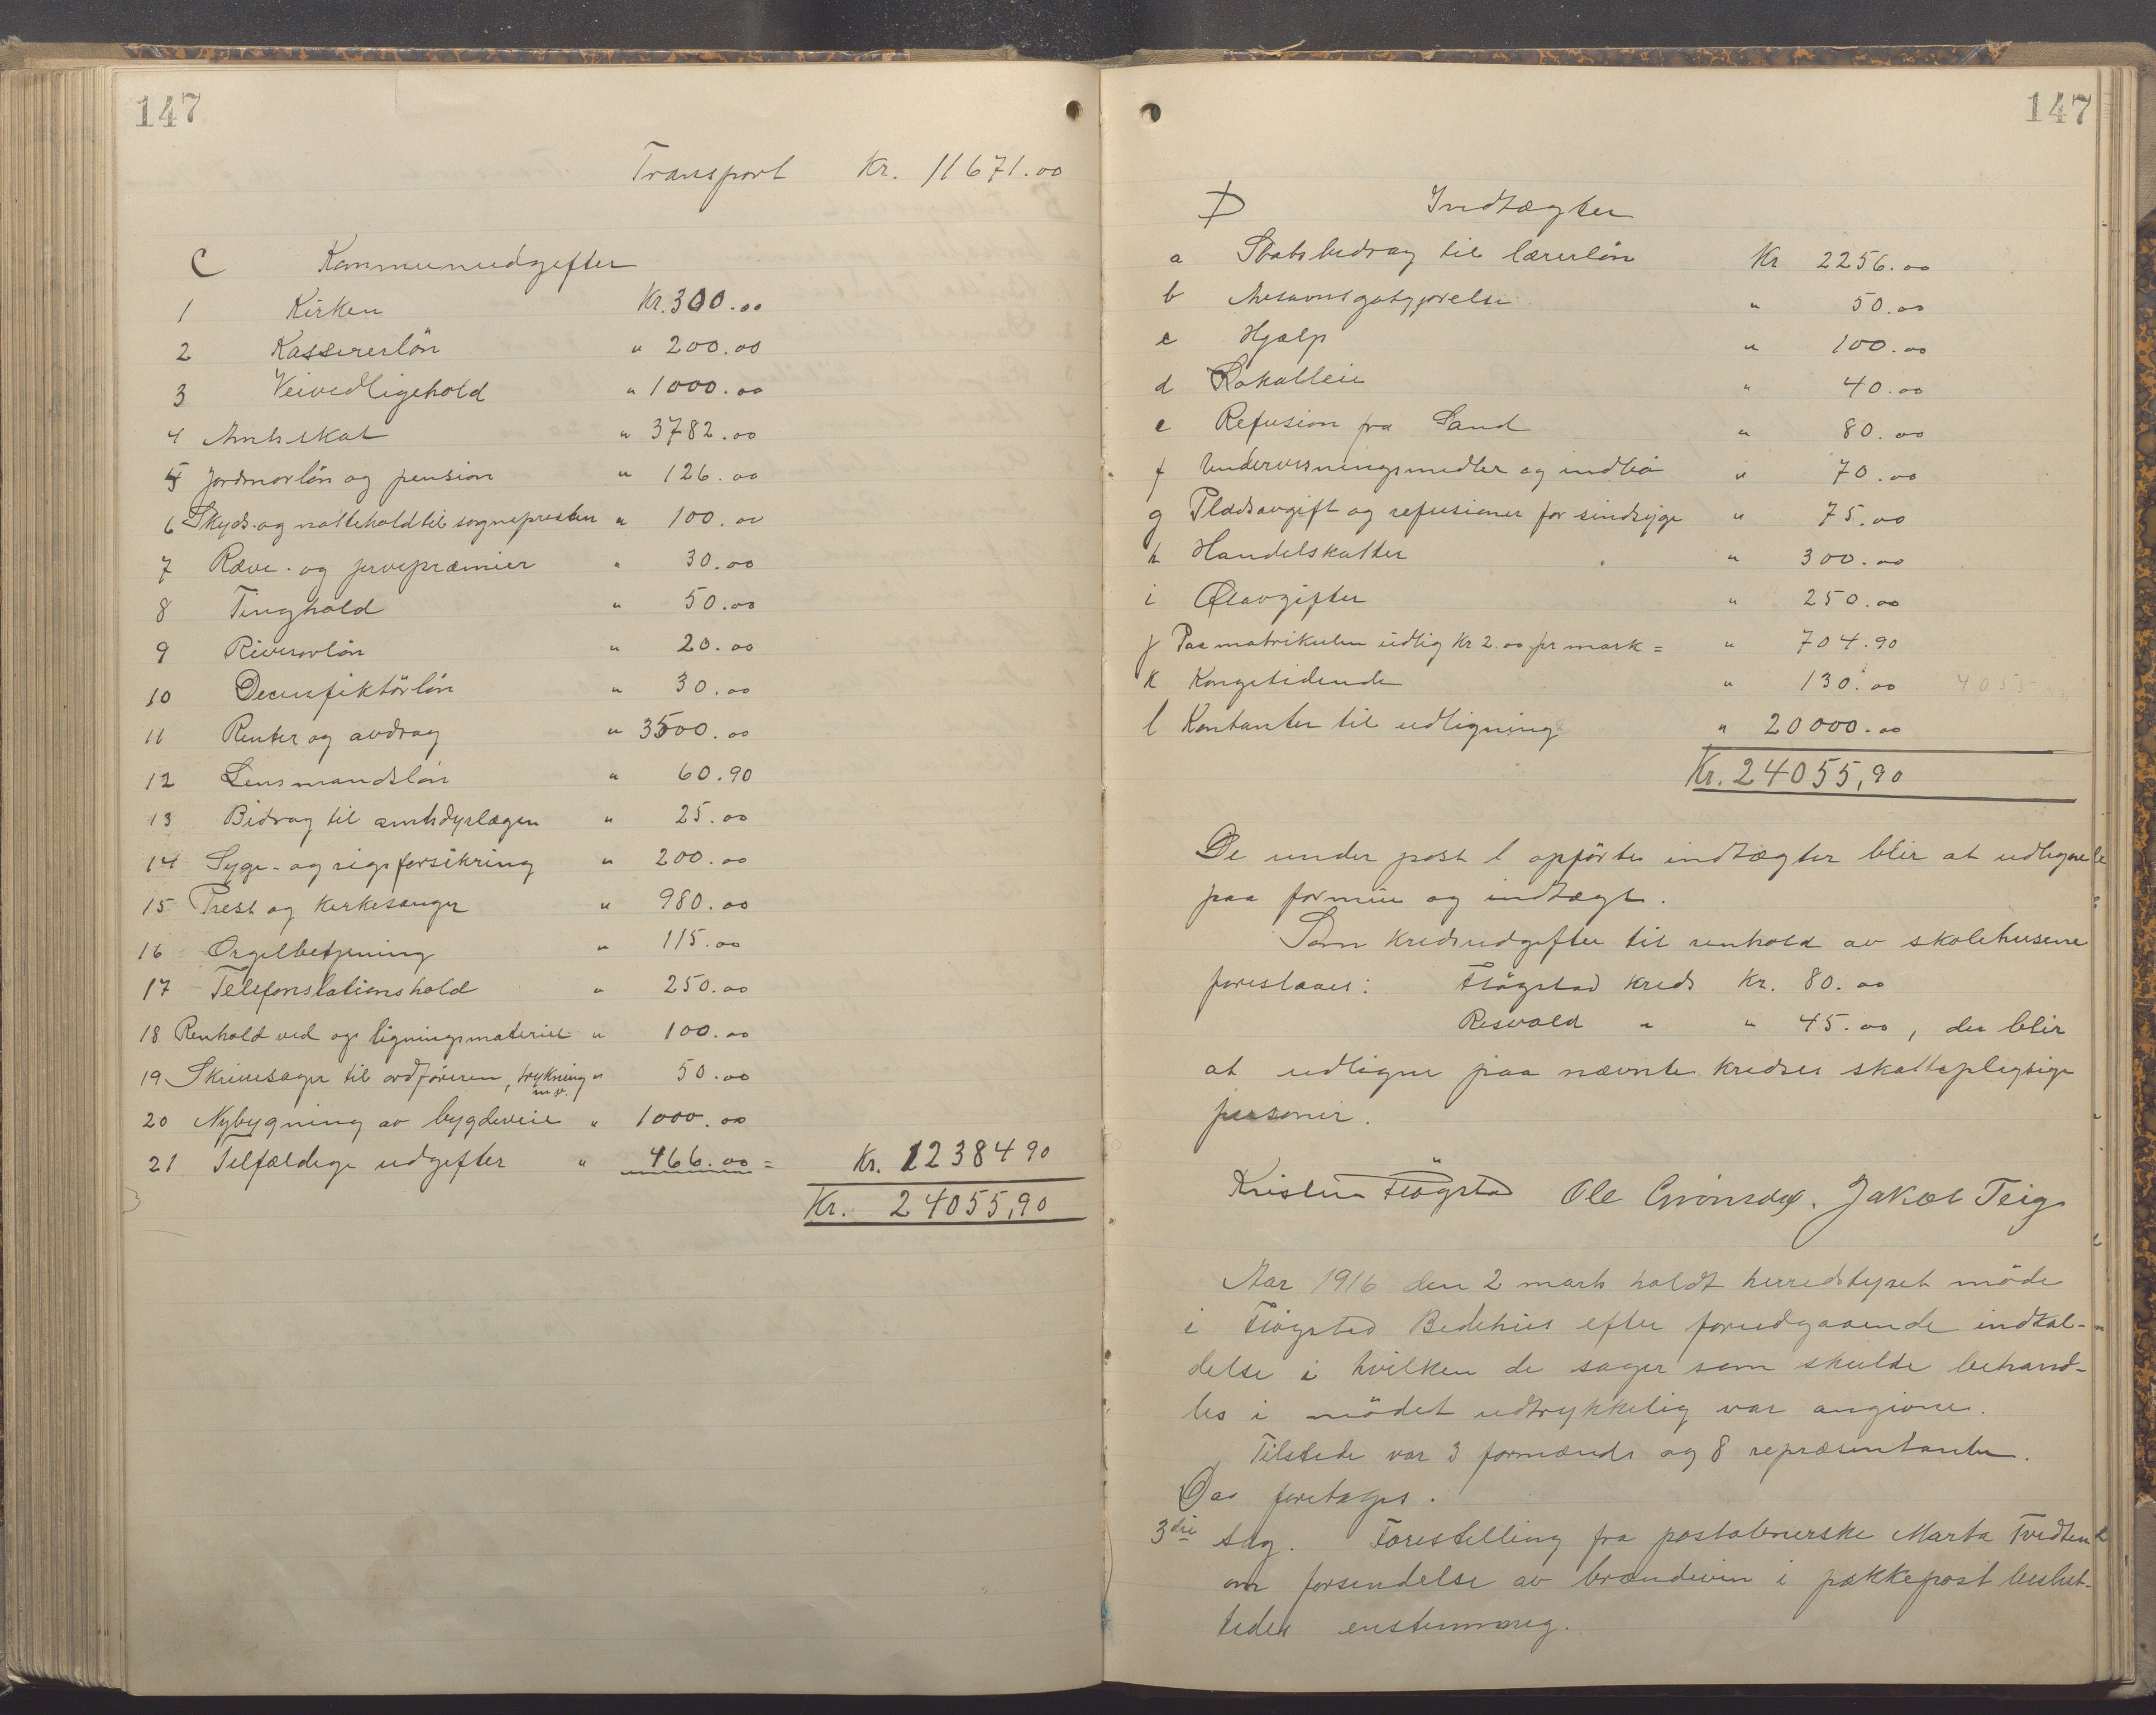 147
Transport Kr. 11671.00
C Kommuneudgifter
1 Kirken Kr. 300.00
2 Kassererlön " 200.00
3 Veivedligehold " 1000.00
4 Amtsskat " 3782.00
5 Jordmorlön og pension " 126.00
6 Skyds- og natteholdtil sognepresten " 100.00
7 Ræve- og jervepræmier " 30.00
8 Tinghold " 50.00
9 Revisorlön " 20.00
10 Decinfiktörlön " 30.00
11 Renter og avdrag " 3500.00
12 Lensmandslön " 60.90
13 Bidrag til amtsdyrlægen " 25.00
14 Syge- og rigsforsikring " 200.00
15 Prest og kirkesanger " 980.00
16 Orgelbetjening " 115.00
17 Telefonstationshold " 250.00
18 Renhold ved og ligningsmateriel " 100.00
19 Skrivesager til ordföreren, trykning m.v. " 50.00
20 Nybygning av bygdeveie " 1000.00
21 Tilfældige udgifter " 466.00 = Kr. 12384 90
Kr. 24055,90
147
D Indtægter
a Statsbidrag til lærerlön Kr 2256.00
b " 50.00
c Hjælp " 100.00
d Lokalleie " 40.00
e Refusion fra Sand " 80.00
f Undervisningsmidler og " 70.00
g Pladsavgift og refusioner for sindsyge " 75.00
h Handelskatter " 300.00
i Ølavgifter " 250.00
j Paa matrikulen udlig Kr 2.00 pr mark = " 704.90
k Kongetidende " 130.00 4055
l Kontanter til udligning " 20000.00
Kr. 24055,90
De under post l opförte indtægter blir at udligne
paa formue og indtægt.
Som kredsudgifter til renhold av skolehusene
foreslaaes: Flögstad kreds Kr. 80.00
Risvold " " 45.00, der blir
at udligne paa nævnte kredses skattepligtige
personer.
Kristen Flögstad Ole Grönsdal. Jakob Teig
Aar 1916 den 2 marts holdt herredstyret möde
i Flögstad Bedehus efter forudgaaende indkal-
delse i hvilken de sager som skulde behand-
les i mödet udtrykkelig var angivne.
Tilstede var 3 formænd og 8 repræsentanter.
Da foretages.
3die sag. Forestilling fra postaabnerske Marta Tvedten
om forsendelse av brændevin i pakkepost beslut-
tedes enstemmig.